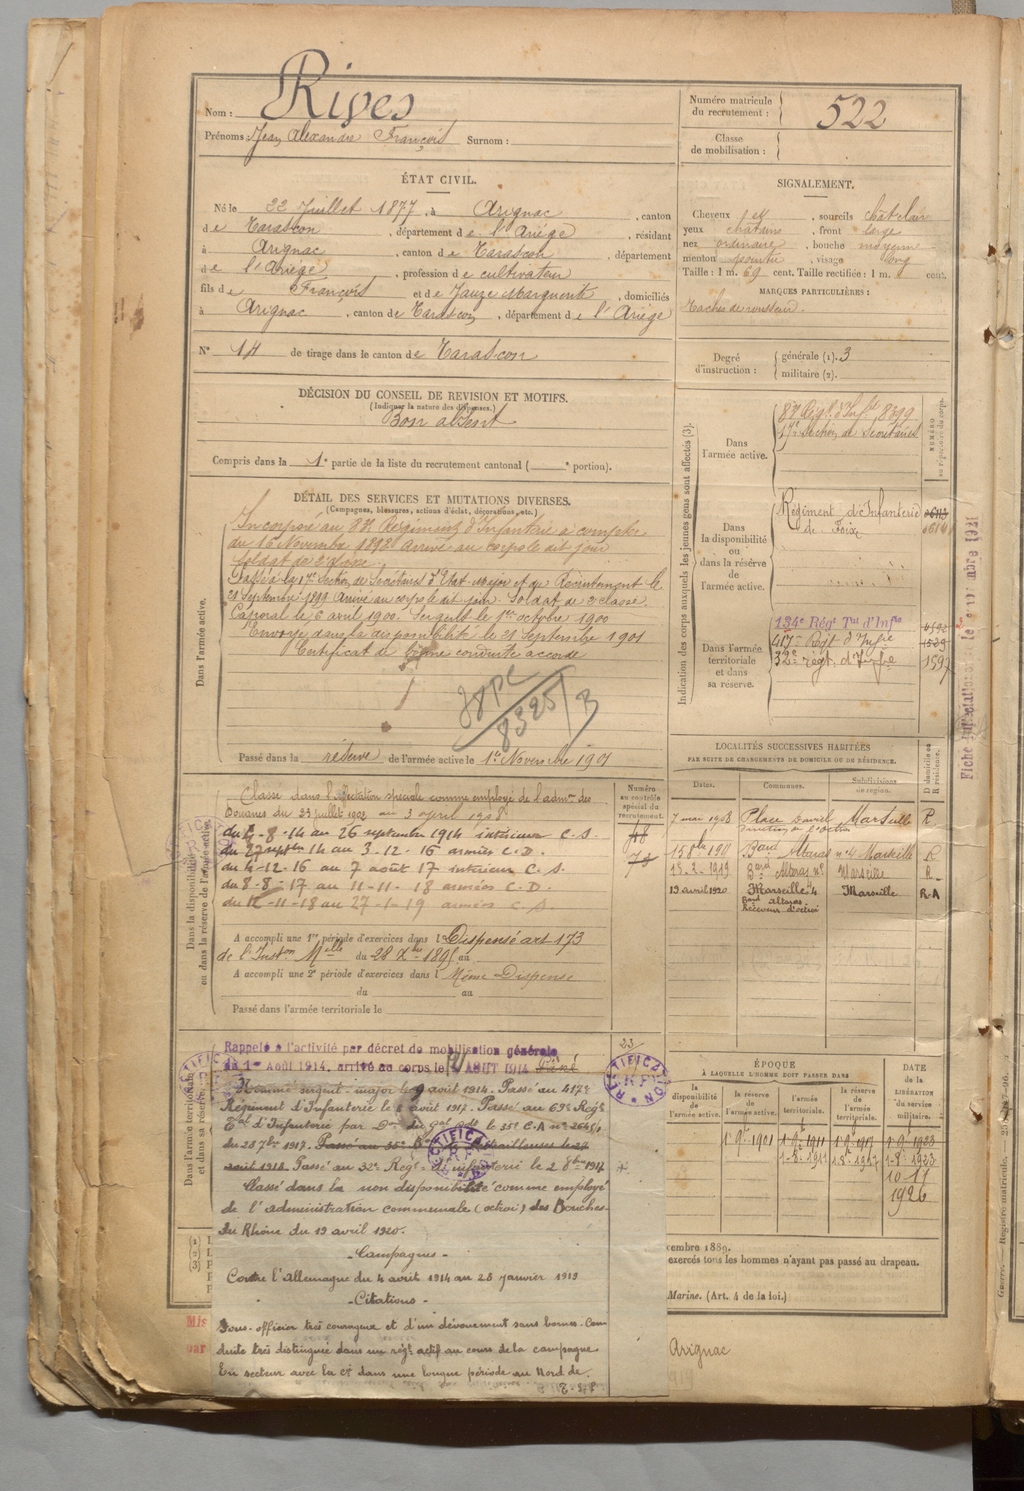 Nom : Rives
Prénoms : Jean Alexandre François Surnom :
Numéro matricule
du recrutement : 522
Classe
de mobilisation :
ÉTAT CIVIL.
Né le 22 Juillet 1877, à Arignac, canton
de Tarascon, département de l'Ariége, résidant
à Arignac, canton de Tarascon, département
de l'Ariége, profession de cultivateur
fils de François et de Jauze Marguerite, domiciliés
à Arignac, canton de Tarascon, département de l'Ariége
N° 14 de tirage dans le canton de Tarascon
SIGNALEMENT.
Cheveux, sourcils chat clair
yeux chatains, front large
nez ordinaire, bouche moyenne
menton pointu, visage long
Taille : 1 m. 69 cent. Taille rectifiée : 1 m. cent.
MARQUES PARTICULIÈRES :
Taches de rousseur.
Degré
d'instruction :
générale (1). 3
militaire (2).
DÉCISION DU CONSEIL DE REVISION ET MOTIFS.
(Indiquer la nature des dispenses.)
Bon absent
Compris dans la 1e partie de la liste du recrutement cantonal ( e portion).
DÉTAIL DES SERVICES ET MUTATIONS DIVERSES.
(Campagnes, blessures, actions d'éclat, décorations, etc.)
Dans l'armée active.
Incorporé au Régiment d'Infanterie à compter
du 16 Novembre 1898 Arrivé au corps le dit jour
Soldat de 2e classe.
Passé à la 17e Section de Secrétaires d'Etat-Major et du Recrutement le
21 Septembre 1899 Arrivé au corps le dit jour. Soldat de 2e classe.
Caporal le 6 avril 1900. Sergent le 1er octobre 1900
Envoyé dans la disponibilité le 21 Septembre 1901
Certificat de bonne conduite accordé
8325/3
Passé dans la réserve de l'armée active le 1er Novembre 1901
Indication des corps auxquels les jeunes gens sont affectés (3).
Dans
l'armée active.
17e Section de Secrétaires
NUMÉRO
au répertoire du corps.
Dans
la disponibilité
ou
dans la réserve
de
l'armée active.
Régiment d'Infanterie
de Foix
Dans l'armée
territoriale
et dans
sa réserve.
134e Régt Tal d'Infie
417e Régt d'Infie
32e régt d'Infie
4592
1529
1597
LOCALITÉS SUCCESSIVES HABITÉES
PAR SUITE DE CHANGEMENTS DE DOMICILE OU DE RÉSIDENCE.
Dates. Communes. Subdivisions
de région.
Domicile ou
Résidence.
7 mai 1903 Marseille R
Bard Altaras n° 4 Marseille R
15.2.1919 Bard Altaras n° Marseille R
19 avril 1920 Marseille 4 Marseille R.A
Bard altaras
Receveur d'octroi
Numéro
au contrôle
spécial du
recrutement.
Dans la disponibilité
ou dans la réserve de l'armée active.
Classé dans l'affectation spéciale comme employé de l'admon des
Douanes du 31 juillet 1902 au 3 april 1908
au 26 septembre 1914 intérieur C.S.
du 27 septbre 14 au 3-12-16 armées C.D.
du 4-12-16 au 7 août 17 intérieur C.S.
du 8-8-17 au 11-11-18 armées C.D.
du 12-11-18 au 27-1-19 armées C.S.
A accompli une 1re période d'exercices dans l Dispensé art 173
de l'Inston Melle du 28 Xbre 1895 au
A accompli une 2e période d'exercices dans l Même Dispense
du au
Passé dans l'armée territoriale le
Dans l'armée territoriale
et dans sa réserve.
Rappelé à l'activité par décret de mobilisation générale
du 1er Août 1914, arrivé au corps le AOUT 1914
Nommé sergent-major le 9 avril 1914. Passé au 417e
Régiment d'Infanterie le août 1917. Passé au 69e Régt
d'Infanterie par du 35e C.A n°
du 28 7bre 1917.
août 1918 Passé au 32e Régt d'infanterie le 2 8bre 1917
Classé dans la non disponibilité comme employé
de l'administration communale (octroi) des Bouches
du Rhône du 19 avril 1920.
- Campagnes -
Contre l'Allemagne du 4 avril 1914 au 28 janvier 1919
- Citations -
Sous-officier très courageux et d'un dévouement sans bornes. Con
duite très distinguée dans un régt actif au cours de la campagne
En secteur avec la Cie dans une longue période au Nord de
RECTIFICATION
R F
ÉPOQUE
À LAQUELLE L'HOMME DOIT PASSER DANS
la
disponibilité
de
l'armée active.
la réserve
de
l'armée active.
l'armée
territoriale.
la réserve
de
l'armée
territoriale.
DATE
de la
LIBÉRATION
du service
militaire.
1-9bre 1901 1-9bre 1911 1-9bre 1917 1-9bre 1923
1-8-1911 1-8-1917 1-8-1923
10-17
1926
cembre 1889.
exercés tous les hommes n'ayant pas passé au drapeau.
Marine. (Art. 4 de la loi.)
Arignac
Mis
par